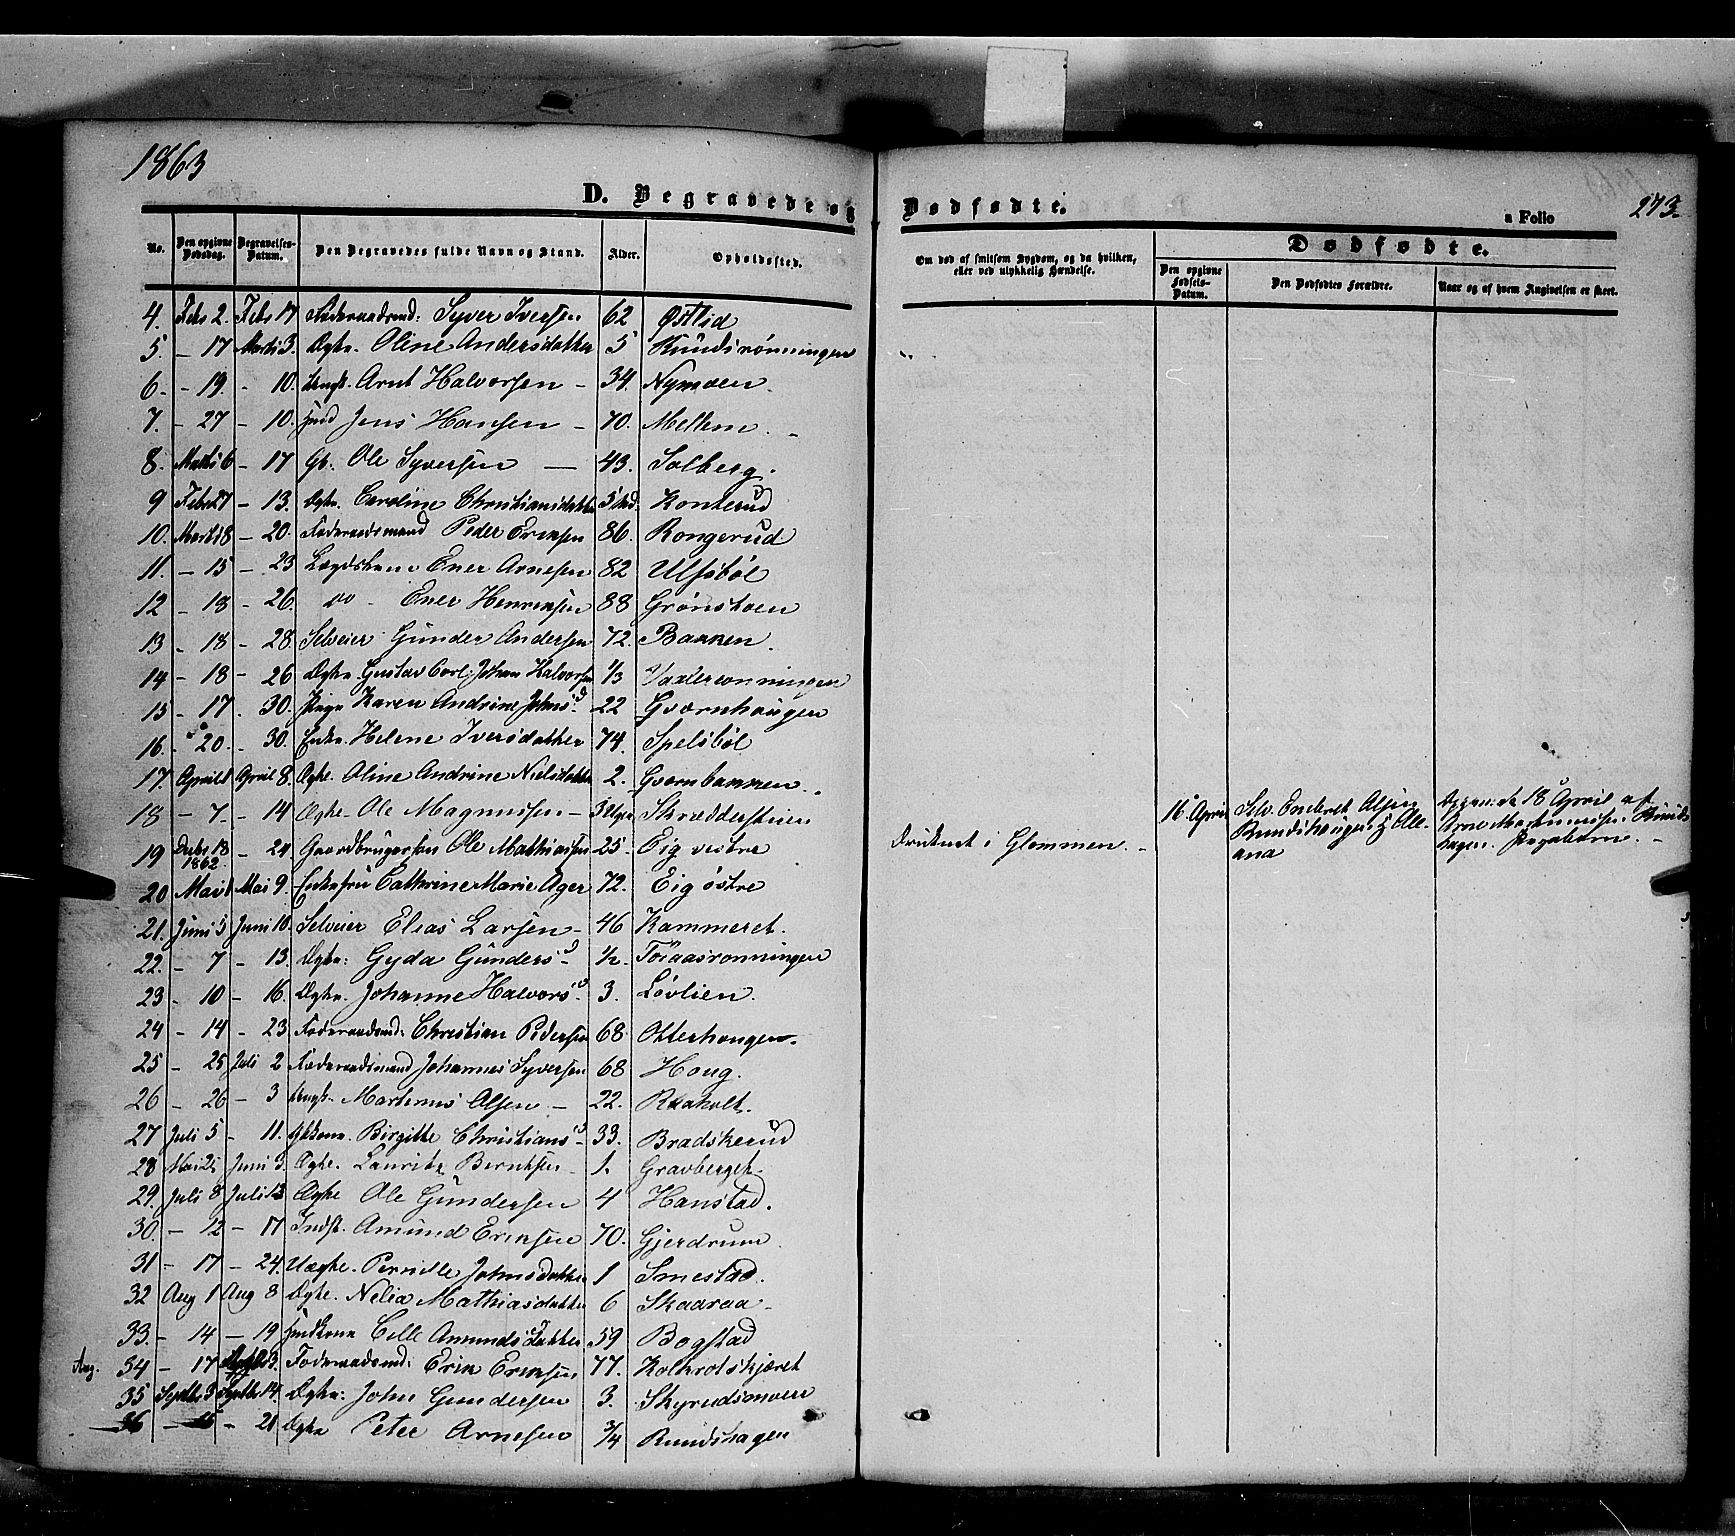 1863
D. Begravede og Dødfødte.
a Folio 273.
No. Den opgivne Dødsdag. Begravelses-Datum. Den Begravedes fulde Navn og Stand. Alder. Opholdssted.
Om død af smitsom Sygdom, og da hvilken, eller ved ulykkelig Hændelse.
Dødfødte.
Den opgivne Fødsels-Datum. Den Dødfødtes Forældre. Naar og af hvem Angivelsen er skeet.
4. Febr 2. Febr 17 Føderaadsmd: Syver Iversen 62 Østlid
5 - 17 Marts 3. Ægte. Oline Andersdatter 5 Knudsrønningen
6 - 19. - 10. Ungk. Arnt Halvorsen - 34. Nymoen.
7. - 27 - 10. Jens Hansen - 70. Mellem.
8. Marts 6 - 17 Gb. Ole Syversen - 43. Solberg.
9 - 13. Ægte. Caroline Christiansdatter Konterud
10. Marts 8 - 20. Føderaadsmand Peder Eriksen 86. Rongerud
11. - 15 - 23 Lægdslem Ener Arnesen 82 Ulfsbøl
12 - 18 - 26. do - Ener Henriksen 88 Grønstoen
13 - 18 - 28. Selveier Gunder Andersen 72. Bakken.
14 - 18 - 26 Ægte. Gustav Carl Johan Halvorsen 1/3
15 - 17. - 30. Pige Karen Andrine Johns d 22 Gværnhaugen
16. - 20. - 30. Enke. Helene Iversdatter 74. Spelsbøl
17. April 1 April 8. Ægte. Oline Andrine Nielsdatter 2. Gværnbakken.
18 - 7. - 14 Ægte Ole Magnussen - 3 Uger Skrædderstuen
19 Decbr 13 1862 - 24 Gaardbrugersøn Ole Mathiassen 25. Eig vestre druknet i Glommen. -
16 April Selv. Engebret Olsen Rundshaugen og Oleana
18 April af
20 Mai 1 Mai 9. Enkefru Cathrine Marie Ager 72. Eig østre
21. Juni 5 Juni 10. Selveier Elias Larsen - 46 Kammeret.
22. - 7 - 13. Ægte: Gyda Gunders d 1/2. Toraasrønningen
23 - 10 - 16. Ægte. Johanne Halvors d 3. Løvlien.
24 - 14 - 23 Føderaadsmd: Christian Pedersen 68. Otterhaugen.
25 - 25 Juli 2 Føderaadsmand Johannes Syversen 68 Houg.
26 - 26 - 3 Ungk. Martinus Olsen - 22. Raaholt.
27 Juli 5 - 11. Birgitte Christians d 33. Bradskerud
28 Mai 25 Juni 3. Ægte. Lauritz Berntsen 1. Gravberget.
29. Juli 8 Juli 13 Ægte Ole Gundersen 4 Hanstad.
30. - 12 - 17 Indst. Amund Eriksen 70. Gjerdrum.
31 - 17 - 24. Uægte. Pernille Johnsdatter 1 Smestad.
32 Aug 1 Aug 8 Ægte. Nelia Mathiasdatter 6 Skaaraa
33. - 14 - 19 Celle Amundsdatter 59 Bogstad
Aug. 34 - 17 Føderaadsmd: Erik Eriksen 77. Kolkrotskjæret
35 Septbr 3 Septbr 14. Ægte: John Gundersen 3. Skyrudsmoen
36 - 15 - 21 Ægte Peter Arnesen 3/4 Rundshagen